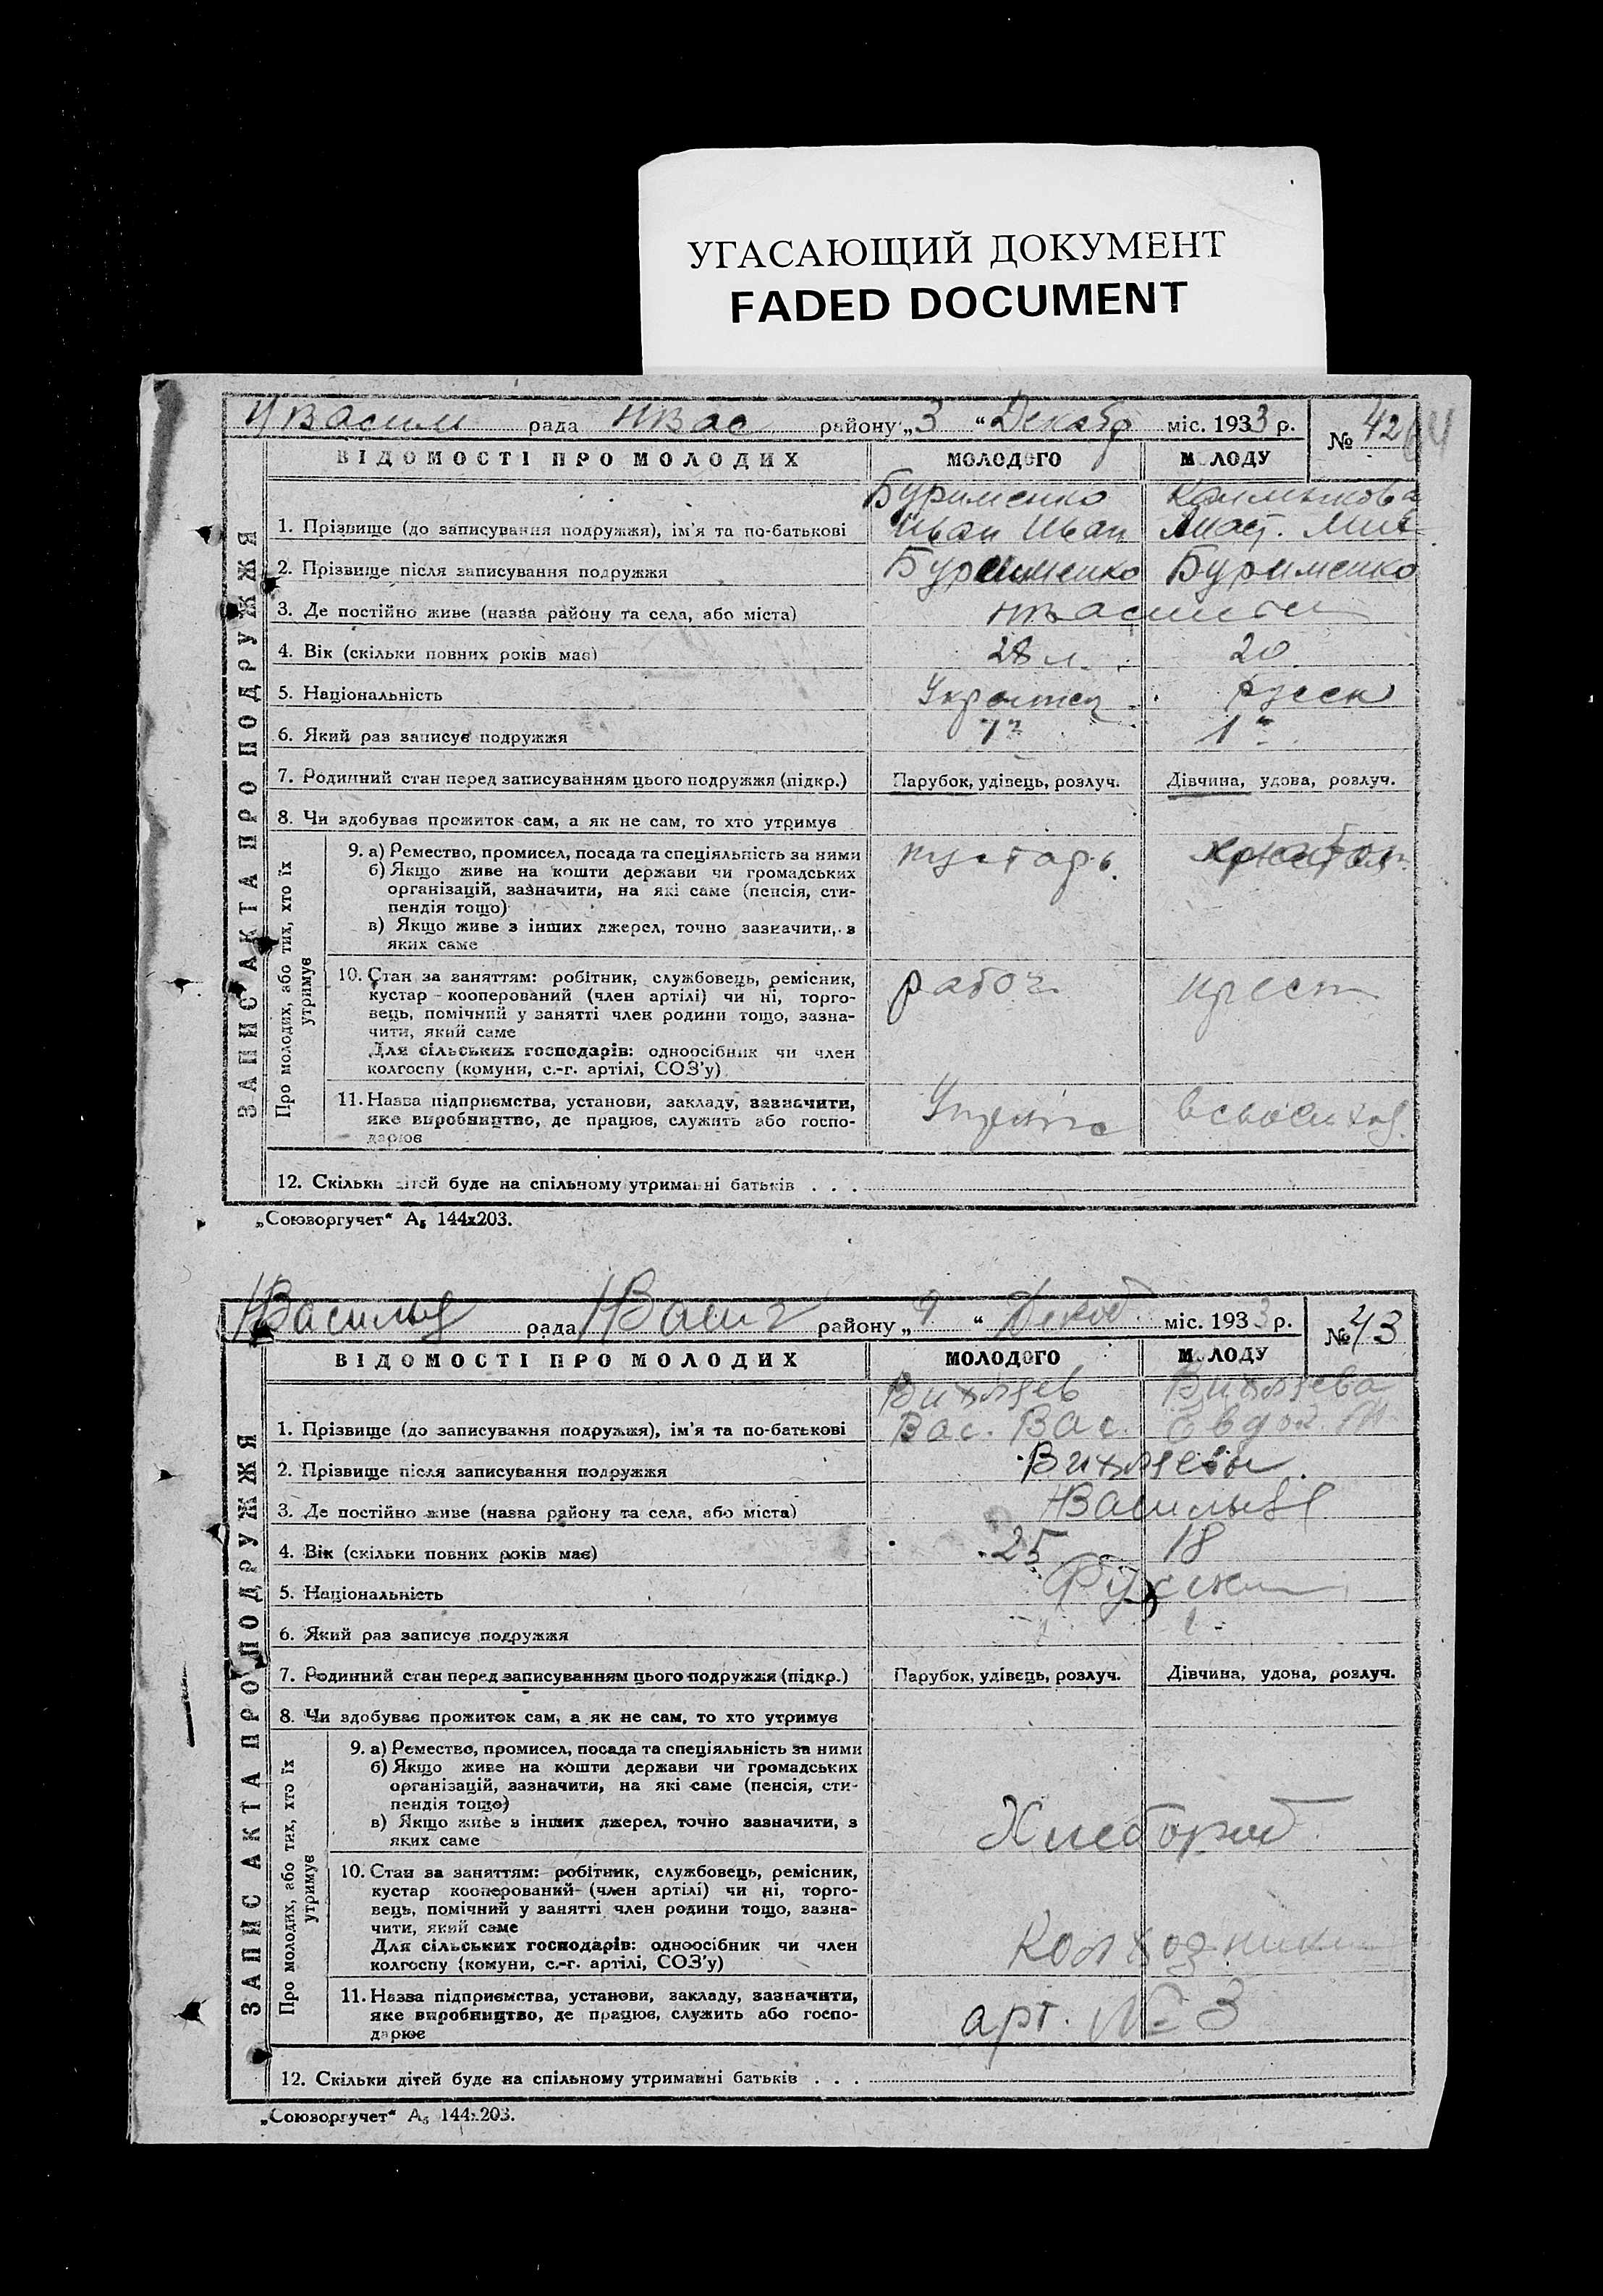 УГАСАЮЩИЙ ДОКУМЕНТ
FADED DOCUMENT
рада НВас району „3 “ Декабр міс. 1933 р.
№ 42
64
ВІДОМОСТІ ПРО МОЛОДИХ МОЛОДОГО МОЛОДУ
Буріменко Калмыкова
1. Прізвище (до записування подружжя), ім'я та по-батькові Иван Иван Наст. Мит
2. Прізвище після записування подружжя Буріменко Буріменко
3. Де постійно живе (назва району та села, або міста)
4. Вік (скільки повних років має) 28 л. 20
5. Національність Украинец Русск
6. Який раз записує подружжя 1й 1й
7. Родинний стан перед записуванням цього подружжя (підкр.) Парубок, удівець, розлуч. Дівчина, удова, розлуч.
8. Чи здобуває прожиток сам, а як не сам, то хто утримує
9. а) Ремество, промисел, посада та спеціяльність за ними кустарь
б) Якщо живе на кошти держави чи громадських
організацій, зазначити, на які саме (пенсія, сти-
пендія тощо)
в) Якщо живе з інших джерел, точно зазначити, з
яких саме
10. Стан за заняттям: робітник, службовець, ремісник, рабоч. крест
кустар-кооперований (член артілі) чи ні, торго-
вець, помічний у занятті член родини тощо, зазна-
чити, який саме
Для сільських господарів: одноосібник чи член
колгоспу (комуни, с.-г. артілі, СОЗ'у)
11. Назва підприємства, установи, закладу, зазначити,
яке виробництво, де працює, служить або госпо-
дарює
12. Скільки дітей буде на спільному утриманні батьків . . .
ЗАПИС АКТА ПРО ПОДРУЖЖЯ
Про молодих, або тих, хто їх
утримує
„Союзоргучет“ А₅ 144х203.
НВасильев рада НВасил району „9 “ Декаб. міс. 1933 р.
№ 43
ВІДОМОСТІ ПРО МОЛОДИХ МОЛОДОГО МОЛОДУ
Вихляев Вихляева
1. Прізвище (до записування подружжя), ім'я та по-батькові Вас. Вас. Евдок. М.
2. Прізвище після записування подружжя Вихляевы
3. Де постійно живе (назва району та села, або міста) НВасильев
4. Вік (скільки повних років має) 25 18
5. Національність Русские
6. Який раз записує подружжя 1 1
7. Родинний стан перед записуванням цього подружжя (підкр.) Парубок, удівець, розлуч. Дівчина, удова, розлуч.
8. Чи здобуває прожиток сам, а як не сам, то хто утримує
9. а) Ремество, промисел, посада та спеціяльність за ними
б) Якщо живе на кошти держави чи громадських
організацій, зазначити, на які саме (пенсія, сти-
пендія тощо)
в) Якщо живе з інших джерел, точно зазначити, з
яких саме
Хлебороб
10. Стан за заняттям: робітник, службовець, ремісник,
кустар кооперований (член артілі) чи ні, торго-
вець, помічний у занятті член родини тощо, зазна-
чити, який саме
Для сільських господарів: одноосібник чи член
колгоспу (комуни, с.-г. артілі, СОЗ'у)
Колхозники
11. Назва підприємства, установи, закладу, зазначити,
яке виробництво, де працює, служить або госпо-
дарює
арт. № 3
12. Скільки дітей буде на спільному утриманні батьків . . .
ЗАПИС АКТА ПРО ПОДРУЖЖЯ
Про молодих, або тих, хто їх
утримує
„Союзоргучет“ А₅ 144х203.